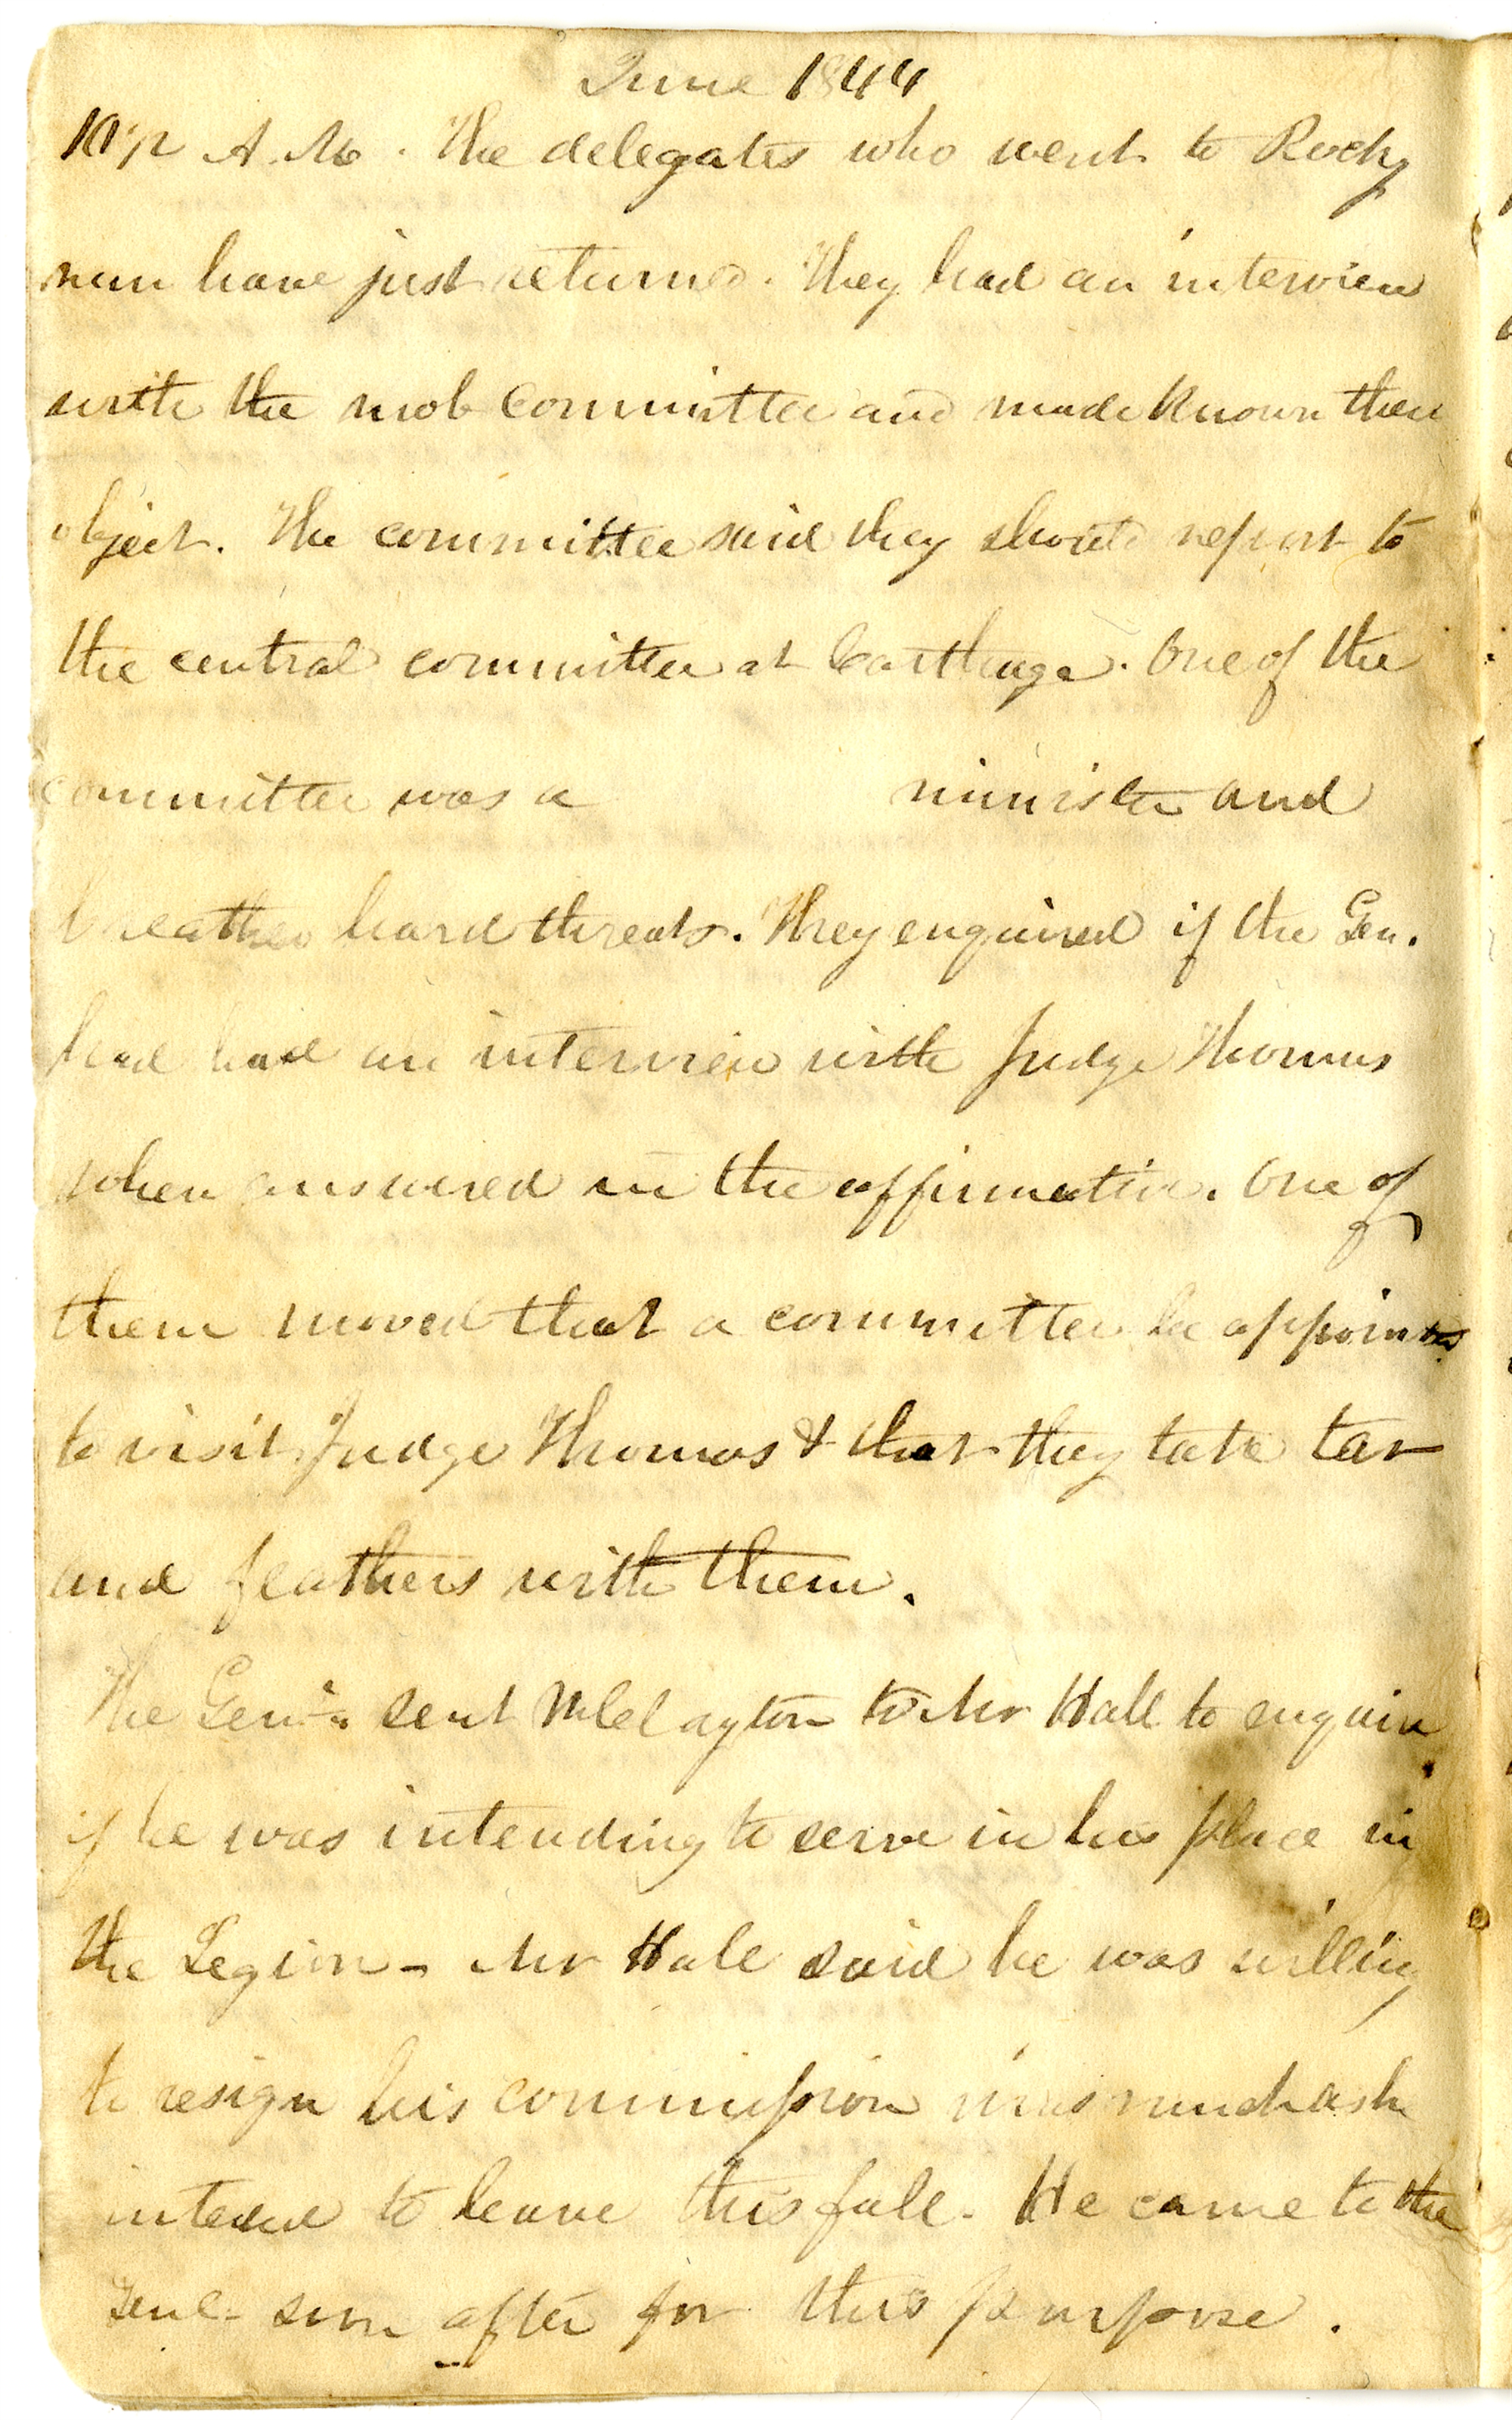 June 1844
10 1/2 A.M. The delegates who went to Rocky
run have just returned. They had an interview
with the mob committee and made known their
object. The committee said they should report to
the central committee at Carthage. One of the
committee was a minister and
breathed hard threats. They enquired if the Gen.
had had an interview with Judge Thomas
when answered in the affirmative. One of
them moved that a committee be appointed
to visit Judge Thomas & that they take tar
and feathers with them.
The Genl. sent W Clayton to Mr Hall to enquire
if he was intending to serve in his place in
the Legion - Mr Hall said he was willing
to resign his commission inasmuch as he
intend to leave this fall. He came to the
Genl. soon after for this purpose.